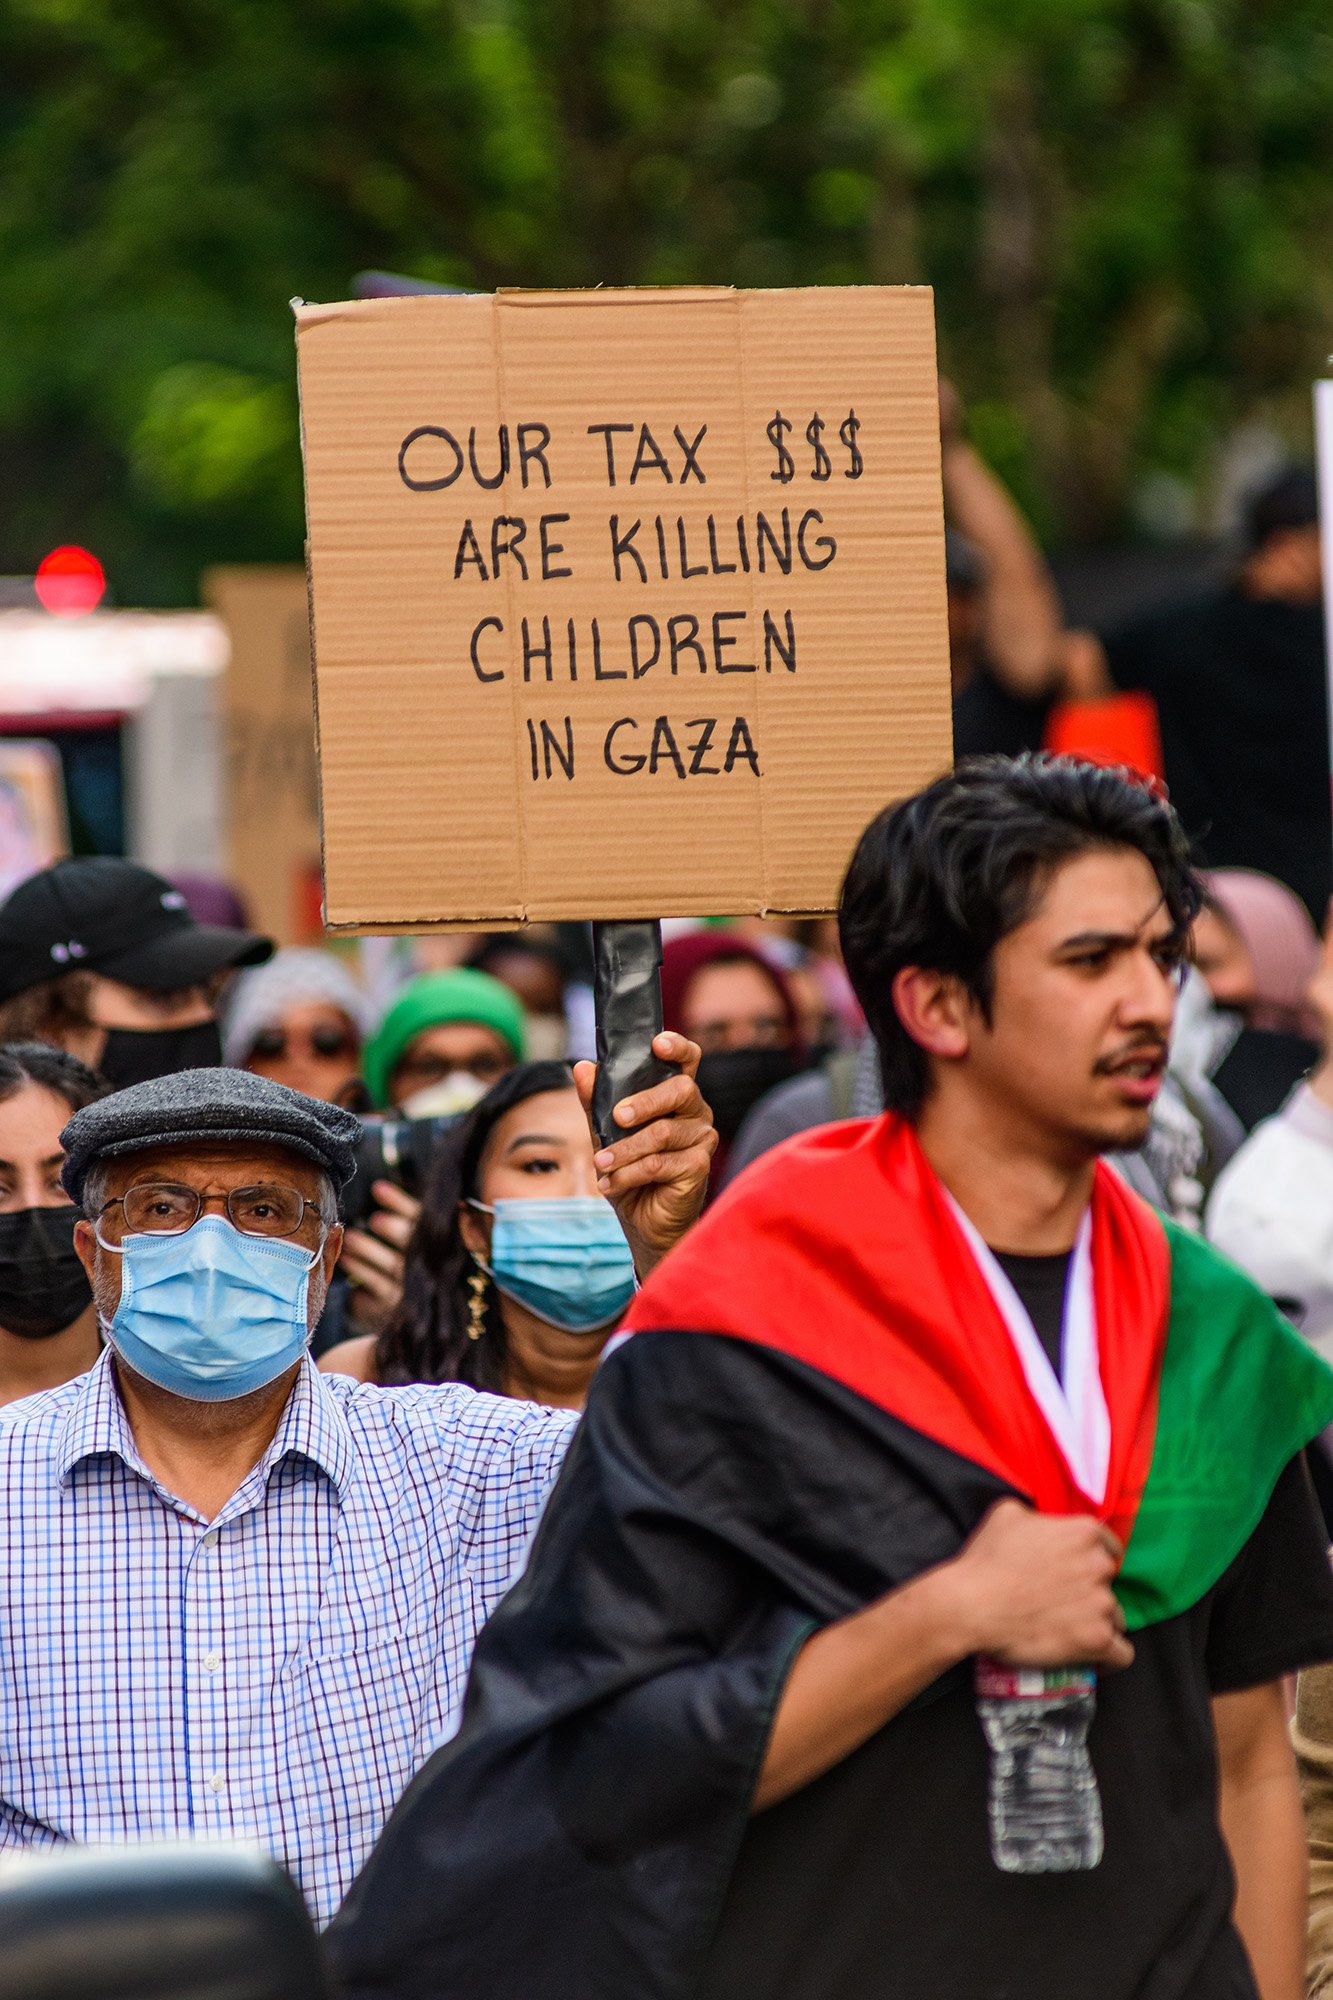 OUR TAX $$$
ARE KILLING
CHILDREN
IN GAZA